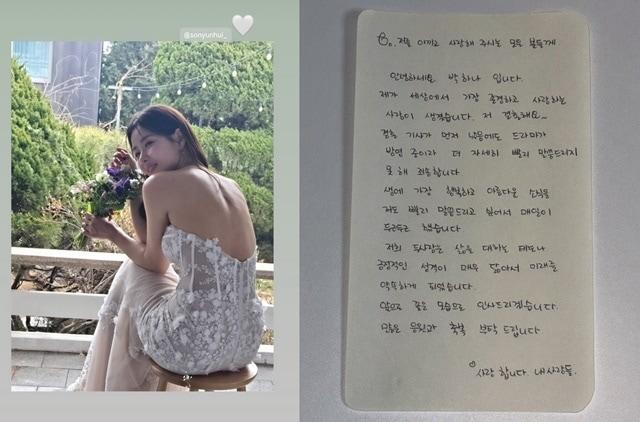 @sonyunhui_
저를 아끼고 사랑해 주시는 모든 분들께
안녕하세요 박하나 입니다.
제가 세상에서 가장 존경하고 사랑하는
사람이 생겼습니다. 저 결혼해요~
결혼 기사가 먼저 났음에도 드라마가
방영 중이라 더 자세히 빨리 말씀드리지
못 해 죄송합니다
생에 가장 행복하고 아름다운 소식을
저도 빨리 말씀드리고 싶어서 매일이
두근두근 했습니다
저희 두사람은 삶을 대하는 태도나
긍정적인 성격이 매우 닮아서 미래를
약속하게 되었습니다.
앞으로 좋은 모습으로 인사드리겠습니다.
많은 응원과 축복 부탁 드립니다.
사랑 합니다. 내사람들.